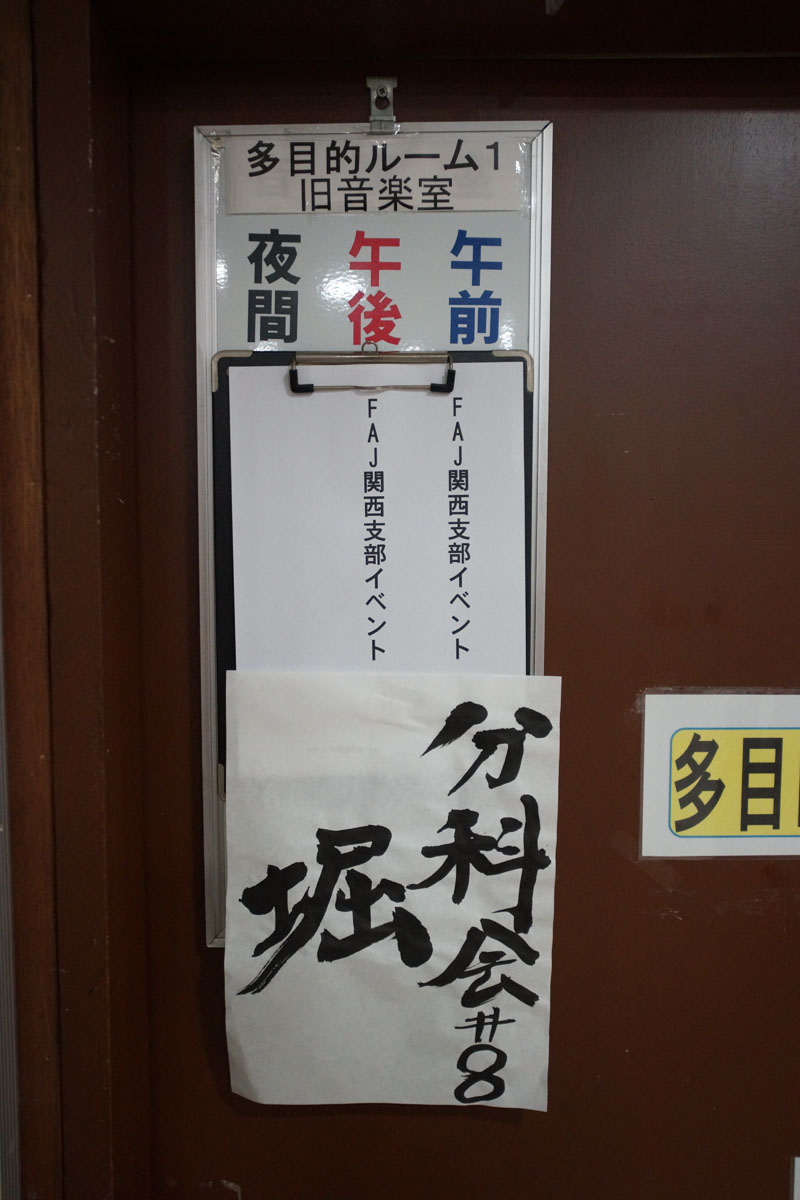 多目的ルーム1
旧音楽室
午前
午後
夜間
FAJ関西支部イベント
FAJ関西支部イベント
分科会#8
堀
多目